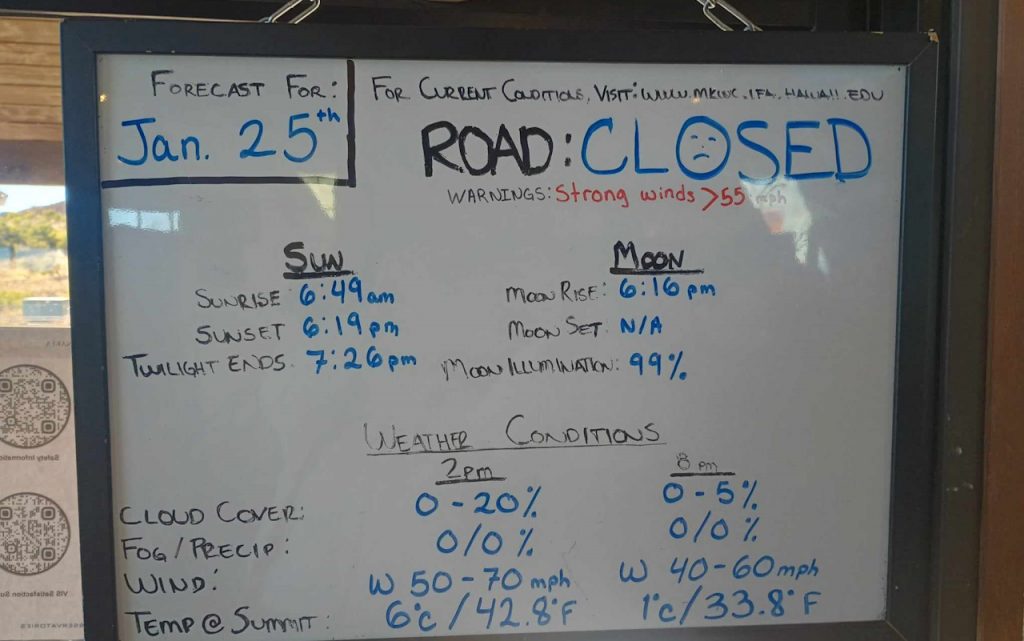 FORECAST FOR:
Jan. 25th
FOR CURRENT CONDITIONS, VISIT: WWW.MKWC.IFA.HAWAII.EDU
ROAD: CLOSED
WARNINGS: Strong winds >55 mph
SUN
SUNRISE: 6:49am
SUNSET 6:19pm
TWILIGHT ENDS. 7:26pm
MOON
MOON RISE: 6:16pm
MOON SET: N/A
MOON ILLUMINATION: 99%
WEATHER CONDITIONS
2pm 8pm
CLOUD COVER: 0-20% 0-5%
FOG/PRECIP: 0/0% 0/0%
WIND: W 50-70mph W 40-60mph
TEMP@SUMMIT: 6°c/42.8°F 1°c/33.8°F
Safety Information